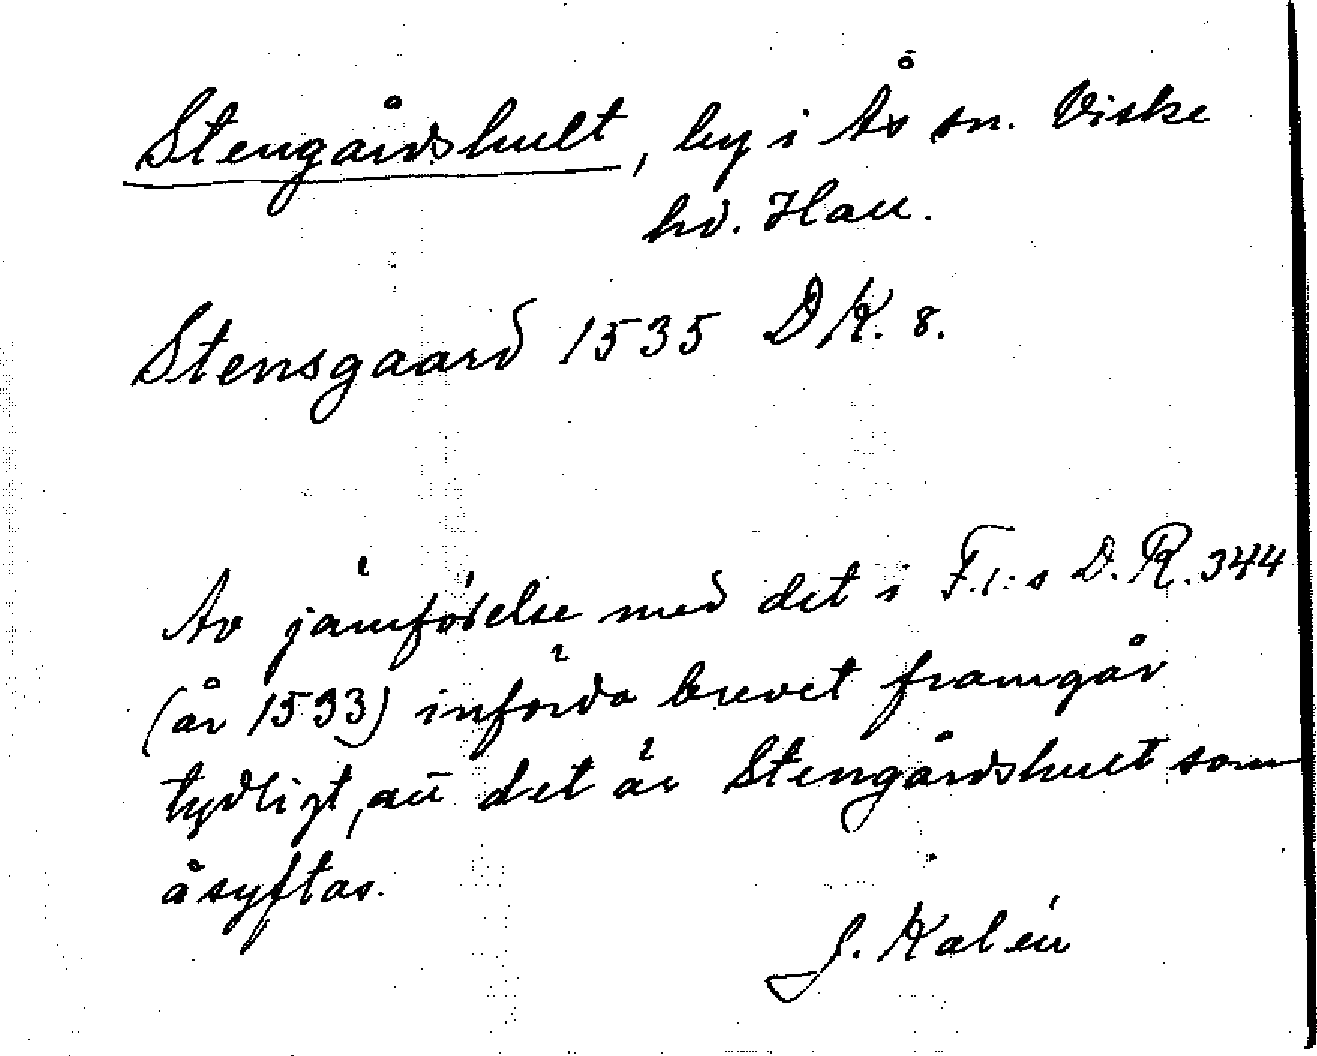 Stengårdshult, by i Ås sn. Viske
hd. Hall.
Stensgaard 1535 DK. 8.
Av jämförelse med det i F.I:s D.R. 344
(år 1533) införda brevet framgår
tydligt, att det är Stengårdshult som
åsyftas.
J. Kalén